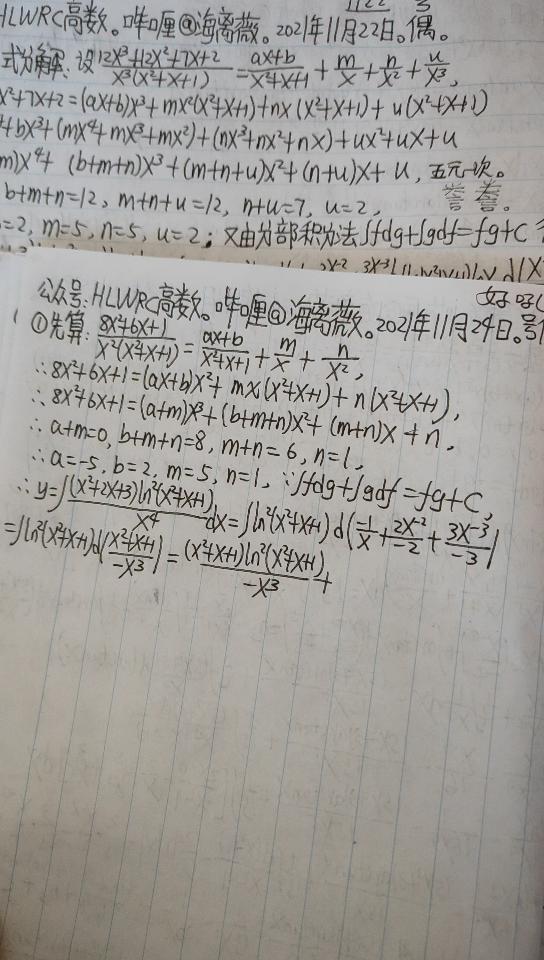 HLWRC高数。哔哩@海离薇。2021年11月22日。偶。
式分解:设(12x³+12x²+7x+2)/(x³(x²+x+1))=(ax+b)/(x²+x+1)+m/x+n/x²+u/x³,
x²+7x+2=(ax+b)x³+mx²(x²+x+1)+nx(x²+x+1)+u(x²+x+1)
+bx³+(mx⁴+mx³+mx²)+(nx³+nx²+nx)+ux²+ux+u
m)x⁴+(b+m+n)x³+(m+n+u)x²+(n+u)x+u,五元一次。
b+m+n=12,m+n+u=12,n+u=7,u=2,
=2,m=5,n=5,u=2;又由分部积分法∫fdg+∫gdf=fg+C
公众号:HLWRC高数。哔哩@海离薇。2021年11月24日。号
①先算:(8x²+6x+1)/(x²(x²+x+1))=(ax+b)/(x²+x+1)+m/x+n/x²,
∴8x²+6x+1=(ax+b)x²+mx(x²+x+1)+n(x²+x+1),
∴8x²+6x+1=(a+m)x³+(b+m+n)x²+(m+n)x+n,
∴a+m=0,b+m+n=8,m+n=6,n=1,
∴a=-5,b=2,m=5,n=1,∵∫fdg+∫gdf=fg+C,
∴y=∫((x²+2x+3)ln²(x²+x+1))/x⁴ dx=∫ln²(x²+x+1)d(-1/x+2x⁻²/-2+3x⁻³/-3)
=∫ln²(x²+x+1)d((x²+x+1)/-x³)=((x²+x+1)ln²(x²+x+1))/-x³+